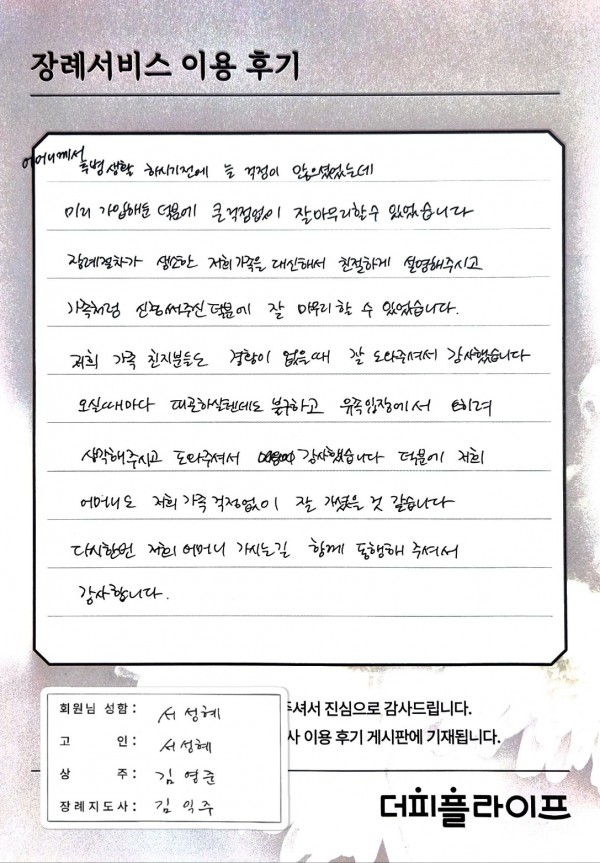 장례서비스 이용 후기
어머니께서 투병생활 하시기전에 늘 걱정이 많으셨었는데
미리 가입해둔 덕분에 큰걱정없이 잘마무리할수 있었습니다
장례절차가 생소한 저희가족을 대신해서 친절하게 설명해주시고
가족처럼 신경써주신 덕분에 잘 마무리 할 수 있었습니다.
저희 가족 친지분들도 경황이 없을때 잘 도와주셔서 감사했습니다
오실때마다 피곤하실텐데도 불구하고 유족입장에서
생각해주시고 도와주셔서 감사했습니다 덕분에 저희
어머니도 저희가족 걱정없이 잘 가셨을 것 같습니다
다시한번 저희 어머니 가시는길 함께 동행해 주셔서
감사합니다.
회원님 성함: 서성혜
고 인: 서성혜
상 주: 김영준
장례지도사: 김익주
주셔서 진심으로 감사드립니다.
사 이용 후기 게시판에 기재됩니다.
더피플라이프